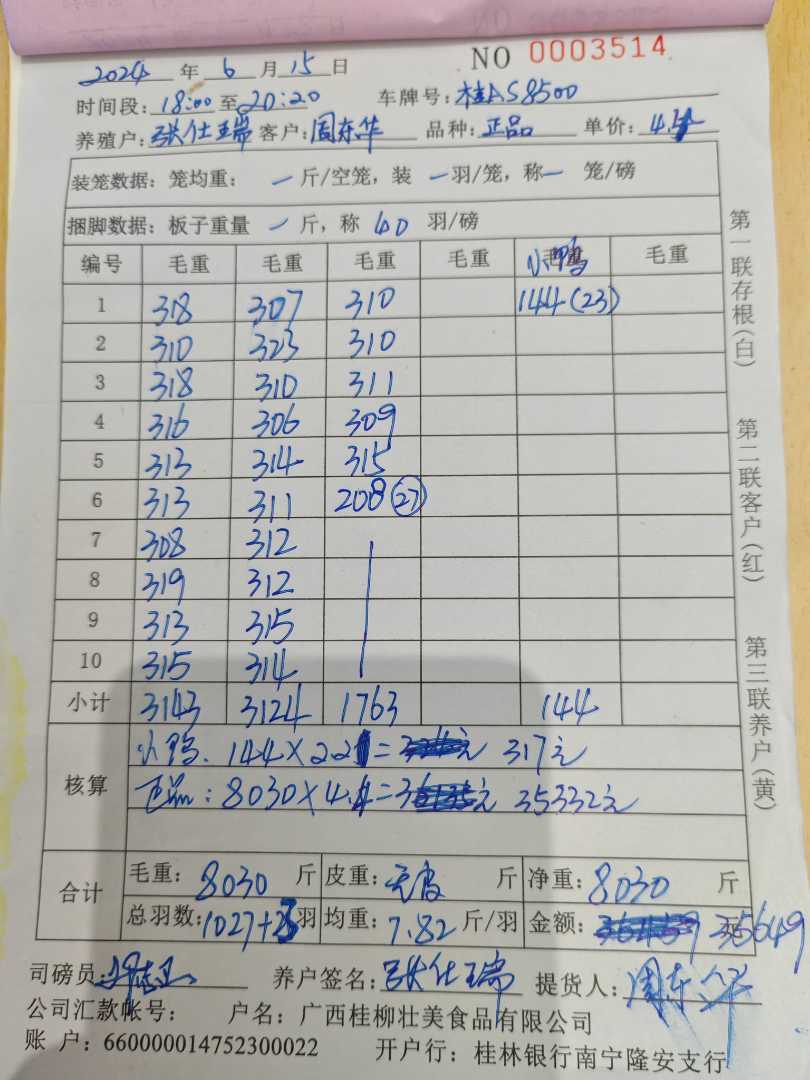 NO 0003514
2024 年 6 月 15 日
时间段: 18:00 至 20:20 车牌号: 桂AS8500
养殖户: 张仕瑞 客户: 周东华 品种: 正品 单价: 4.4
装笼数据: 笼均重: 一 斤/空笼, 装 一 羽/笼, 称 一 笼/磅
捆脚数据: 板子重量 一 斤, 称 40 羽/磅
编号 毛重 毛重 毛重 毛重 小鸭 毛重
1 318 307 310 144(23)
2 310 323 310
3 318 310 311
4 316 306 309
5 313 314 315
6 313 311 208(27)
7 308 312
8 319 312
9 313 315
10 315 314
小计 3143 3124 1763 144
核算
小鸭. 144×2.2= 317元
正品: 8030×4.4= 35332元
合计
毛重: 8030 斤 皮重: 无皮 斤 净重: 8030 斤
总羽数: 1027+23 羽 均重: 7.82 斤/羽 金额: 35649
司磅员: 养户签名: 张仕瑞 提货人: 周东华
公司汇款帐号: 户名: 广西桂柳壮美食品有限公司
账 户: 660000014752300022 开户行: 桂林银行南宁隆安支行
第一联存根(白) 第二联客户(红) 第三联养户(黄)